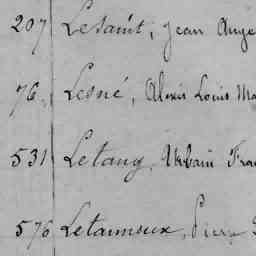 207 Lesaint, Jean Ange
76. Lesné, Alexis Louis Ma
531 Letang, Urbain Fra
576 Letaumoux, Pierre